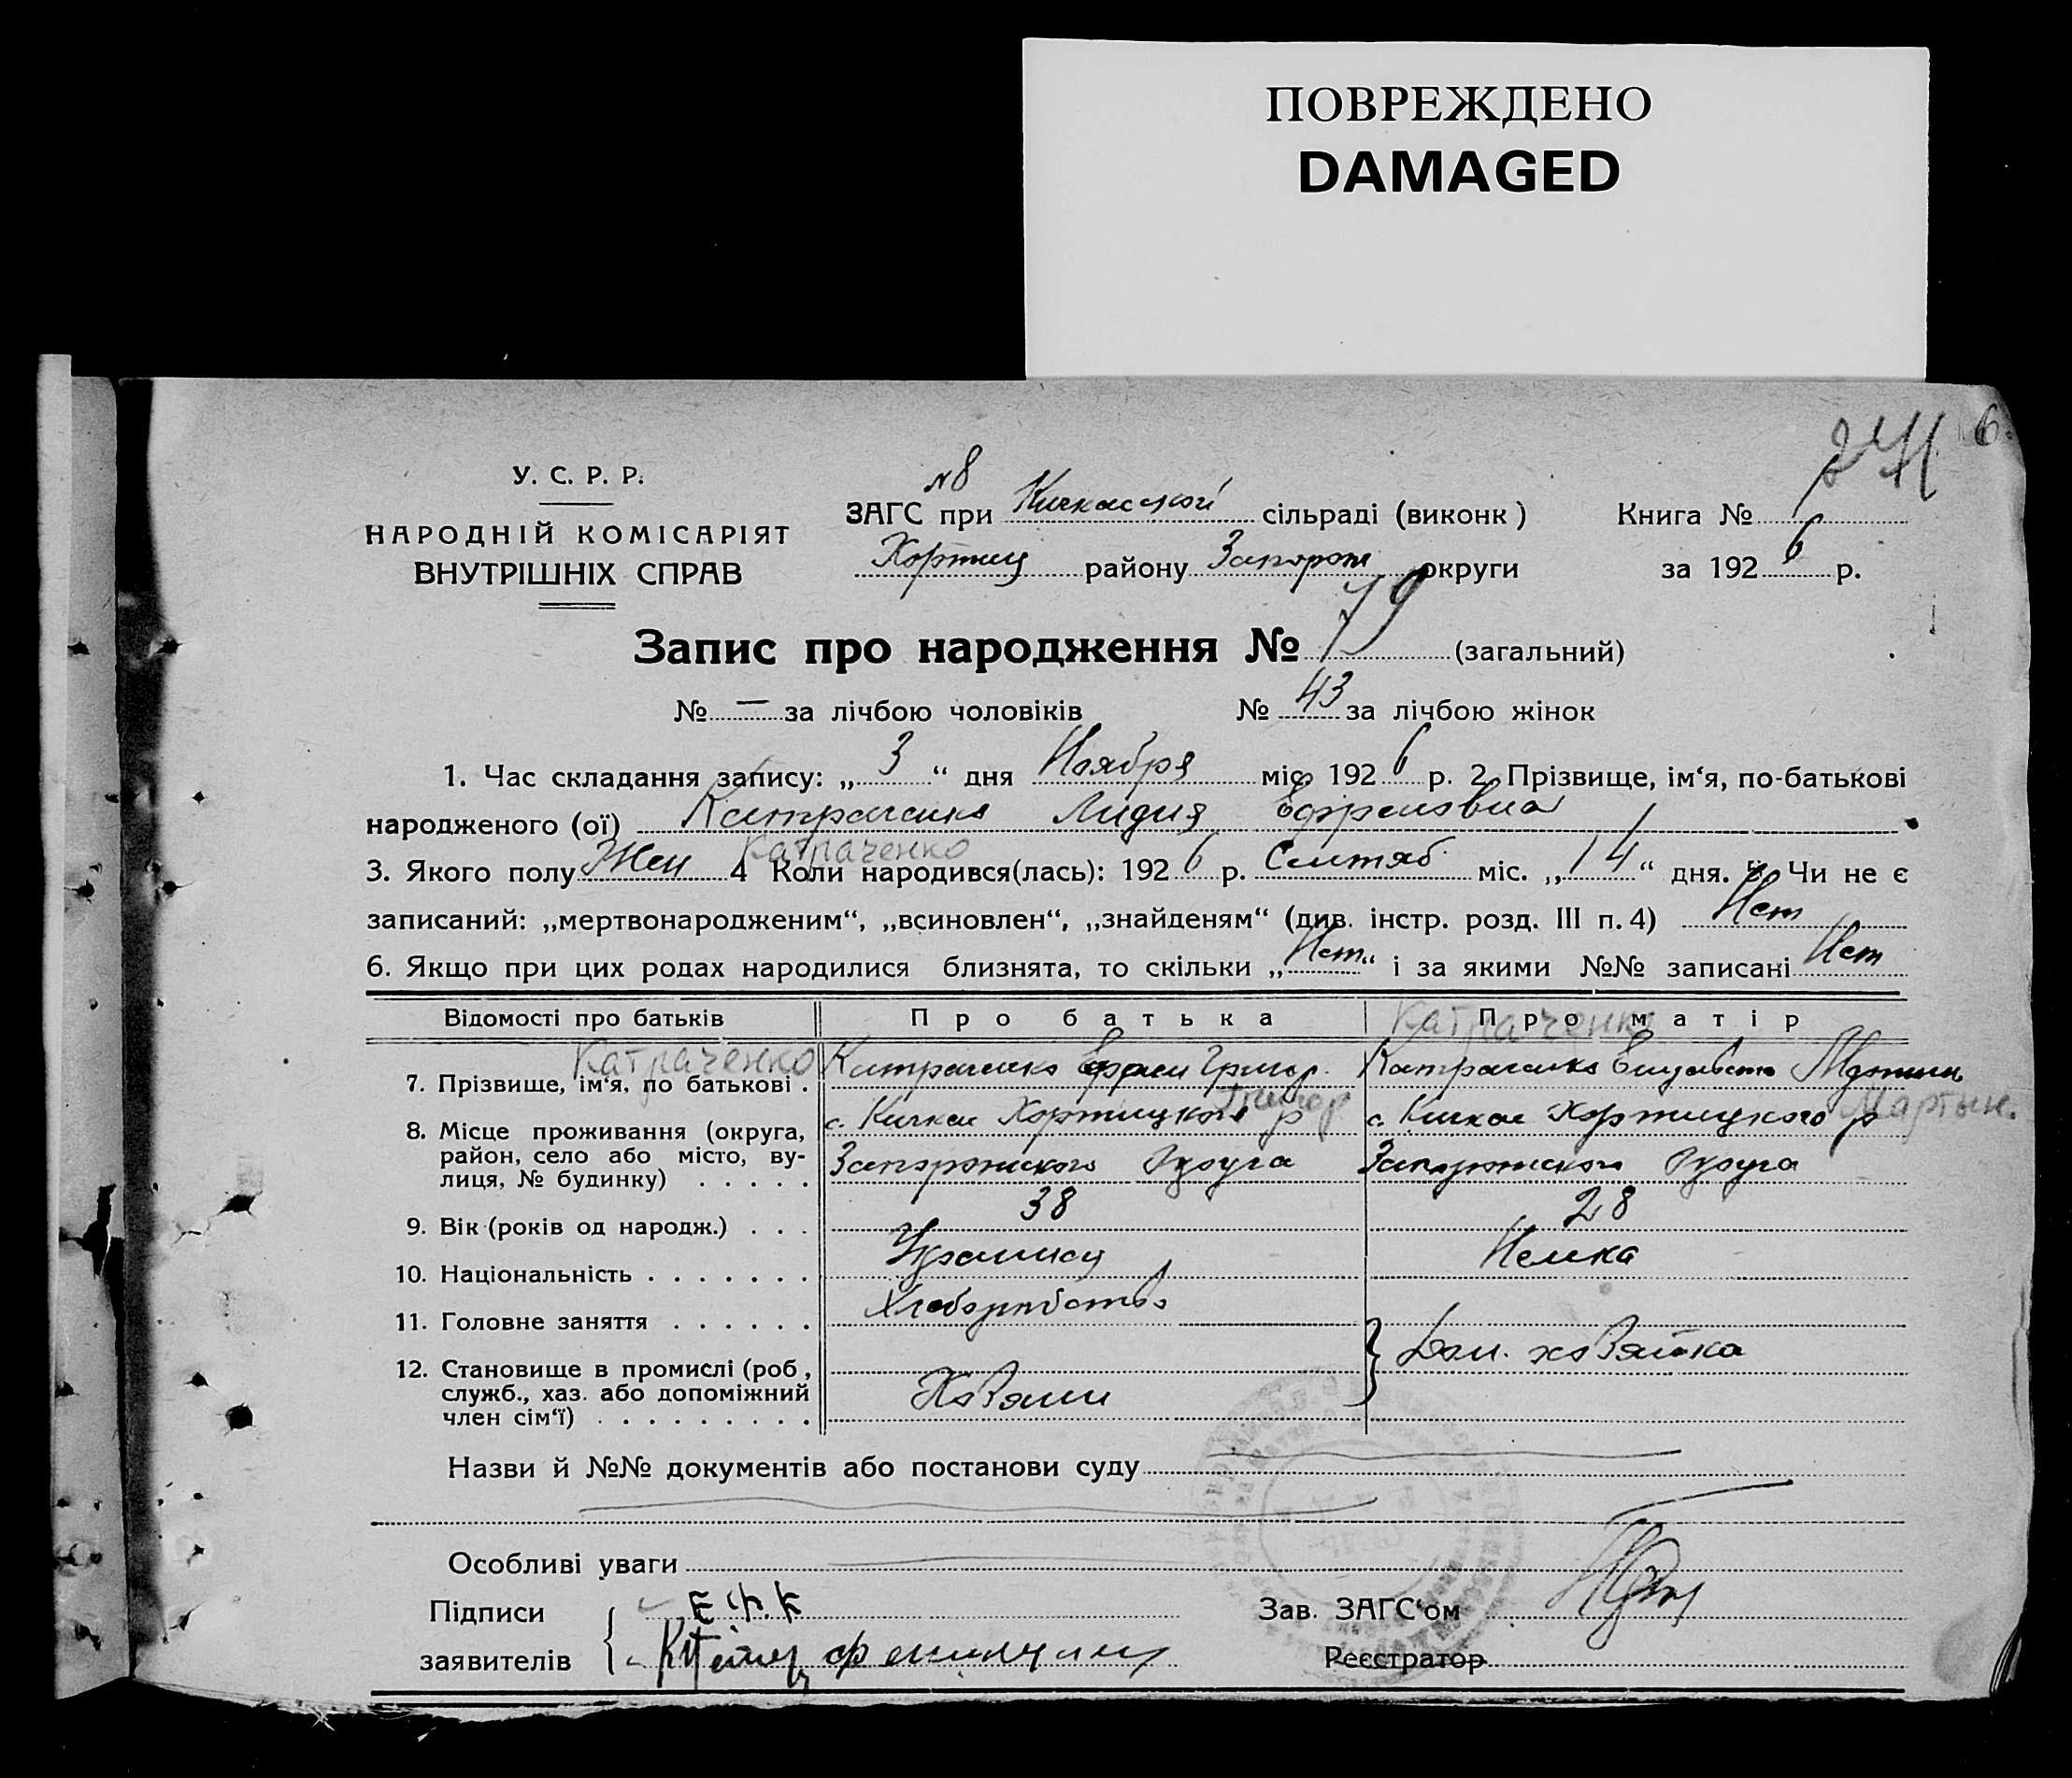 ПОВРЕЖДЕНО
DAMAGED
241 6
У. С. Р. Р.
НАРОДНІЙ КОМІСАРІЯТ
ВНУТРІШНІХ СПРАВ
№8
ЗАГС при Кичкасской сільраді (виконк) Книга №
Хортиц району Запорож округи за 1926 р.
Запис про народження № 79 (загальний)
№ — за лічбою чоловіків № 43 за лічбою жінок
1. Час складання запису: „ 3 “ дня Ноября міс 1926 р. 2. Прізвище, ім‘я, по-батькові
народженого (ої) Катраченко Лидия Ефремовна
Катраченко
3. Якого полу Жен 4 Коли народився(лась): 1926 р. Сентяб. міс. „ 14 “ дня. 5. Чи не є
записаний: „мертвонародженим“, „всиновлен“, „знайденям“ (див. інстр. розд. III п. 4) Нет
6. Якщо при цих родах народилися близнята, то скільки „ Нет “ і за якими №№ записані Нет
Відомості про батьків Про батька Про матір
Катраченко Катраченко
7. Прізвище, ім‘я, по батькові . Катраченко Ефрем Григор. Катраченко Елизавета Мартын
Григор Мартын.
8. Місце проживання (округа, с. Кичкас Хортицкого р с. Кичкас Хортицкого р
район, село або місто, ву- Запорожского Округа Запорожского Округа
лиця, № будинку) . . . . .
9. Вік (років од народж.) . . . 38 28
10. Національність . . . . . . . Украинец Немка
11. Головне заняття . . . . . . Хлеборобство
Дом. хозяйка
12. Становище в промислі (роб., Хозяин
служб., хаз. або допоміжний
член сім‘ї) . . . . . . . . .
Назви й №№ документів або постанови суду
Особливі уваги
Підписи Е Ф. К Зав. ЗАГС‘ом
заявителів Реєстратор